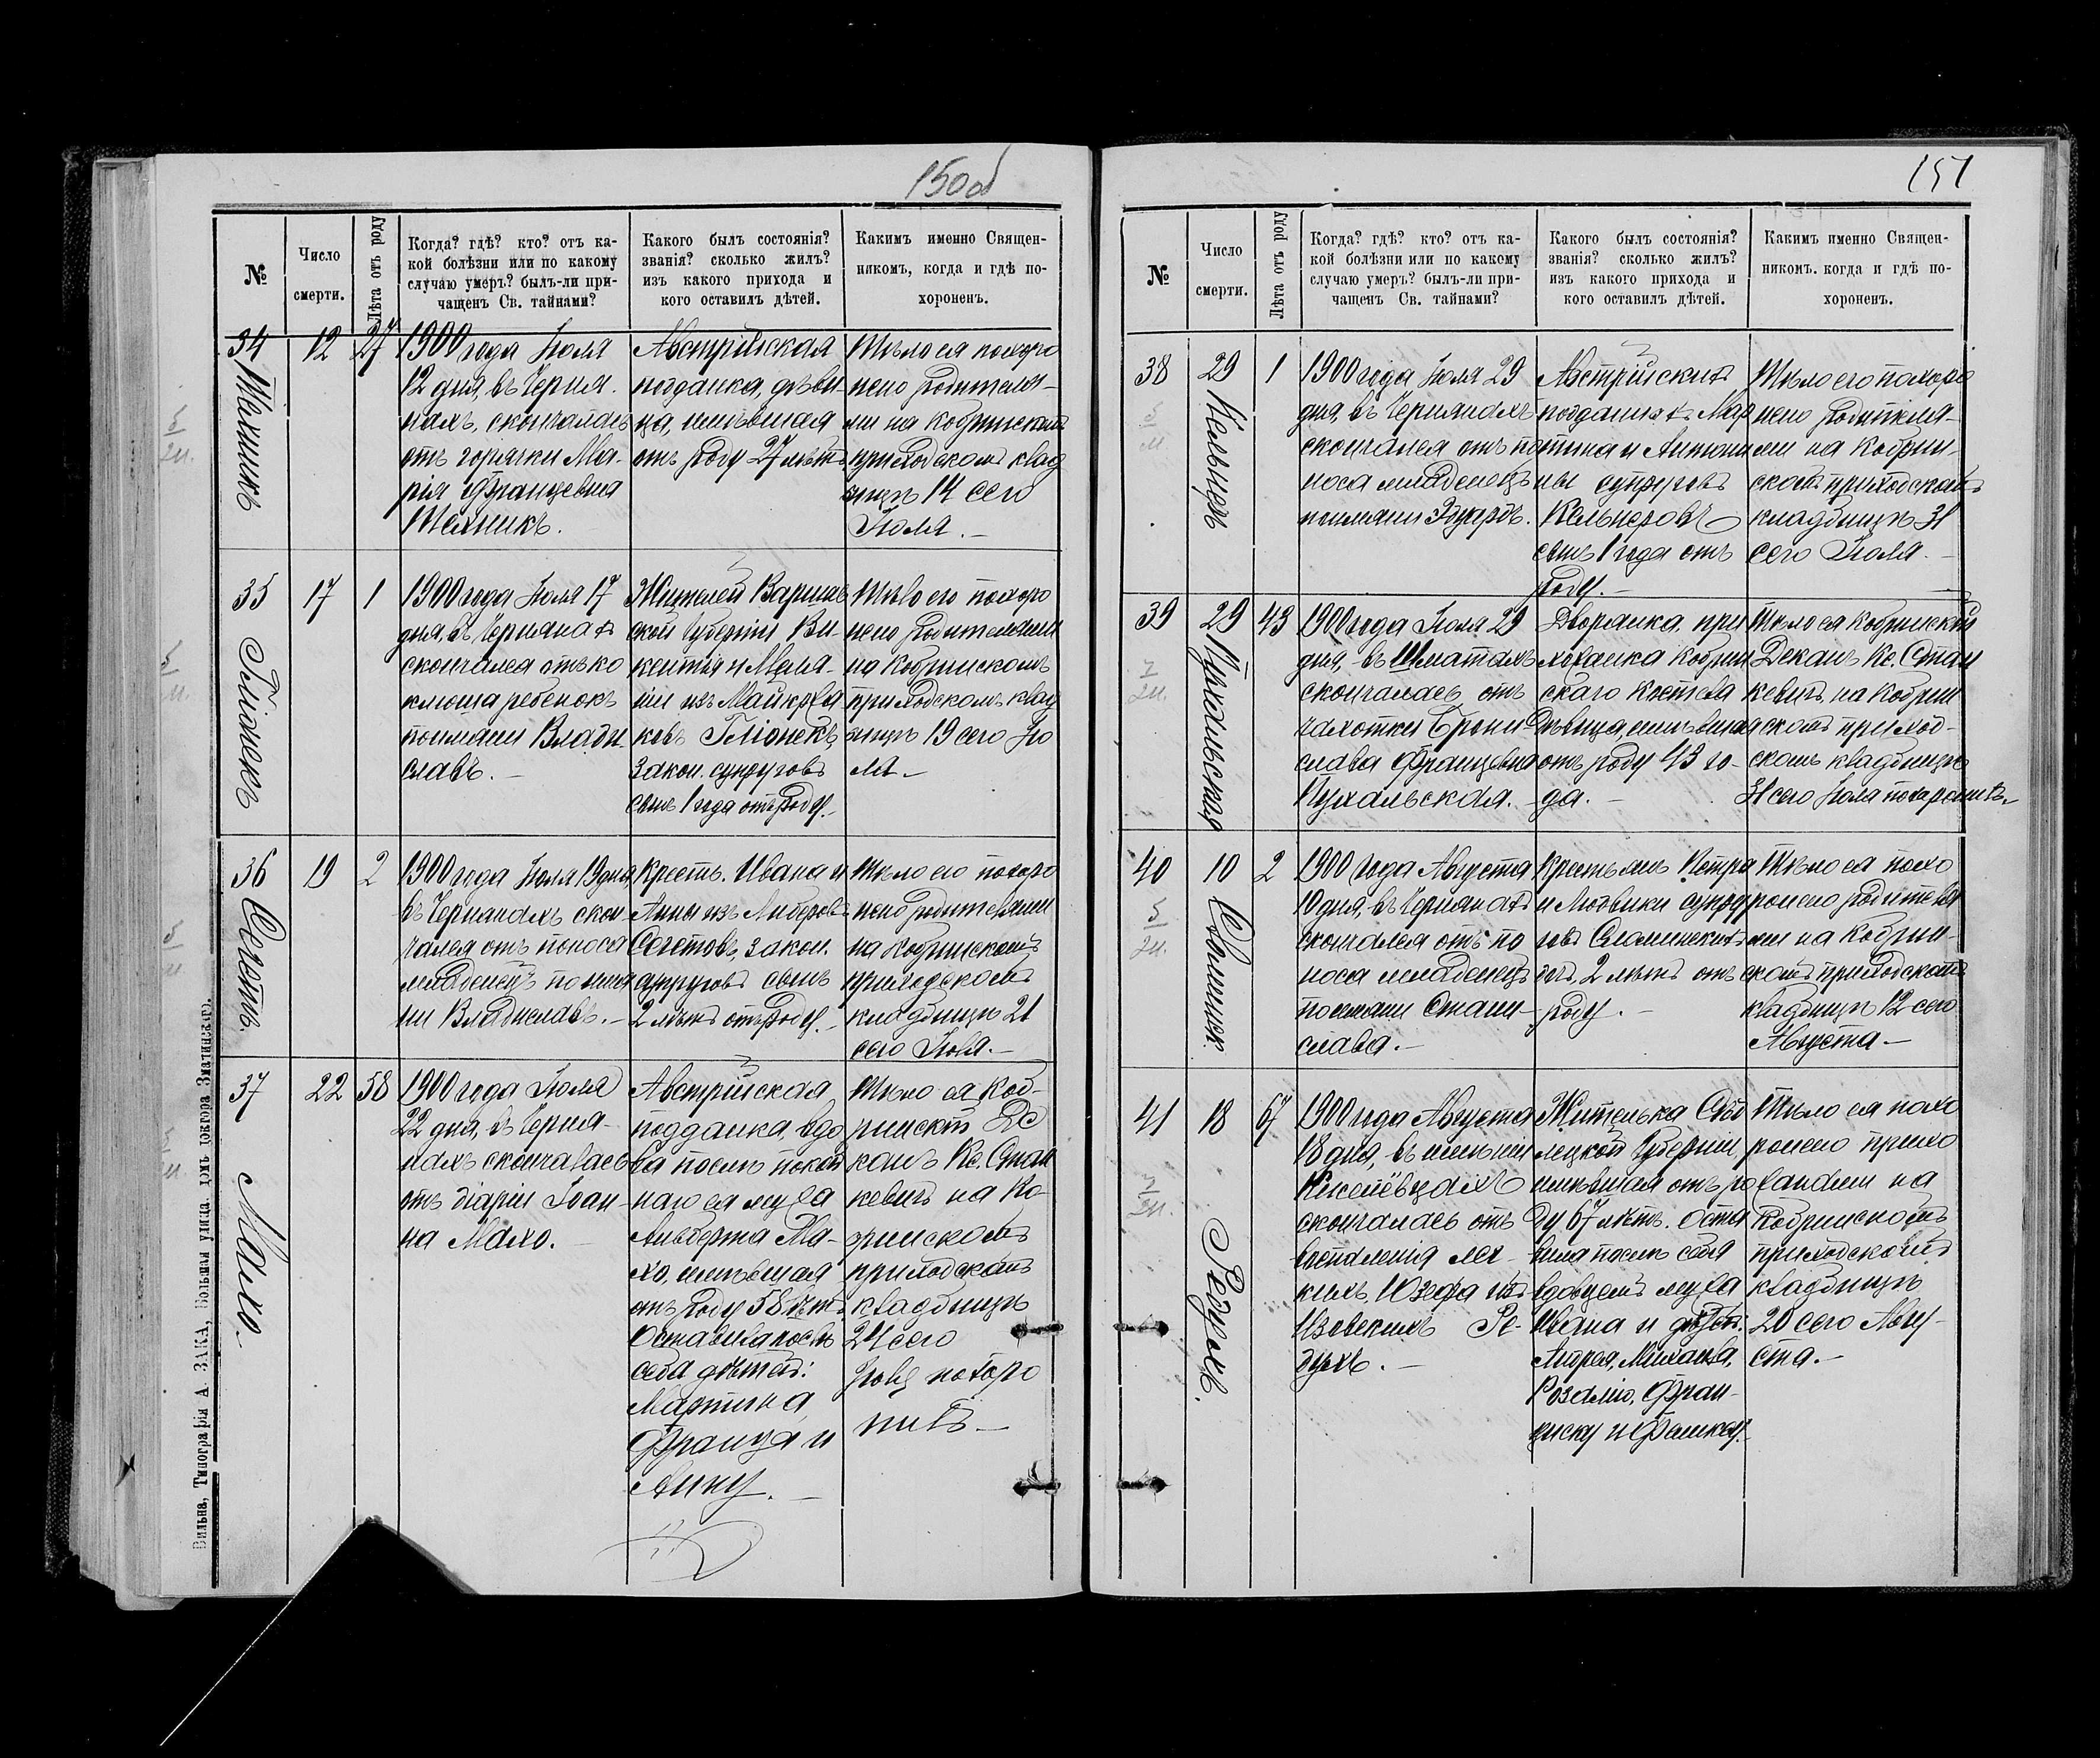 150об
№
Число
смерти.
Лѣта отъ роду
Когда? гдѣ? кто? отъ ка-
кой болѣзни или по какому
случаю умеръ? былъ-ли при-
чащенъ Св. тайнами?
Какого былъ состоянія?
званія? сколько жилъ?
изъ какого прихода и
кого оставилъ дѣтей.
Какимъ именно Священ-
никомъ, когда и гдѣ по-
хороненъ.
34
Техникъ
12
27
1900 года Іюля
12 дня, въ Черня-
нахъ, скончалась
отъ горячки Ма-
рія Францевна
Техникъ.
Австрійская
подданка, дѣви-
ца, имѣвшая
отъ роду 27 лѣтъ
Тѣло ея похоро
нено родителя-
ми на Кобринскомъ
приходскомъ клад
бищѣ 14 сего
Іюля.-
35
Гліонекъ
17
1
1900 года Іюля 17
дня, въ Чернянахъ
скончался отъ ко
клюша ребенокъ
поимени Влади
славъ.-
Жителей Варшав
ской Губерніи Ви-
кентія и Мела-
ніи изъ
ковъ Гліонекъ,
закон. супруговъ
сынъ 1 года отъ роду.-
Тѣло его похоро
нено родителями
на Кобринскомъ
приходскомъ клад
бищѣ 19 сего Ію
ля.-
36
Сеготъ.
19
2
1900 года Іюля 19 дня,
въ Чернянахъ скон-
чался отъ поноса
младенецъ по име
ни Владиславъ.-
Крестъ. Ивана и
Анны изъ Либеровъ
Сеготовъ, закон.
супруговъ сынъ
2 лѣтъ отъ роду.-
Тѣло его похоро
нено родителями
на Кобринскомъ
приходскомъ
кладбищѣ 21
сего Іюля.-
37
Махо.
22
58
1900 года Іюля
22 дня, въ Черня-
нахъ скончалась
отъ діаріи Іоан-
на Махо.-
Австрійская
подданка, вдо
ва послѣ покой
наго ея мужа
Альберта Ма-
хо, имѣвшая
отъ роду 58 лѣтъ
Оставила послѣ
себя дѣтей:
Мартина,
Франца и
Анну.-
Тѣло ея Коб-
ринскій Де
канъ Кс. Стан
кевичъ на Ко-
бринскомъ
приходскомъ
кладбищѣ
24 сего
Іюля похоро
нилъ-
Вильна, Типографія А. ЗАКА, Большая улица, домъ доктора Змачинскаго.
151
№
Число
смерти.
Лѣта отъ роду
Когда? гдѣ? кто? отъ ка-
кой болѣзни или по какому
случаю умеръ? былъ-ли при-
чащенъ Св. тайнами?
Какого былъ состоянія?
званія? сколько жилъ?
изъ какого прихода и
кого оставилъ дѣтей.
Какимъ именно Священ-
никомъ. когда и гдѣ по-
хороненъ.
38
Кельнеръ
29
1
1900 года Іюля 29
дня, въ Чернянахъ
скончался отъ по
носа младенецъ
поимени Эдуардъ.
Австрійскихъ
подданыхъ Мар
тина и Антони
ны супруговъ
Кельнеровъ
сынъ 1 года отъ
роду.-
Тѣло его похоро
нено родителя-
ми на Кобрин-
скомъ приходскомъ
кладбищѣ 31
сего Іюля.-
39
Пухальская
29
43
1900 года Іюля 29
дня, въ Шматахъ
скончалась отъ
чахотки Брони-
слава Францевна
Пухальская.-
Дворянка, при
хожанка Кобрин
скаго костела
дѣвица, имѣвшая
отъ роду 43 го-
да.-
Тѣло ея Кобринскій
Деканъ Кс. Стан
кевичъ, на Кобрин
скомъ приход-
скомъ кладбищѣ
31 сего Іюля похоронилъ.-
40
10
2
1900 года Августа
10 дня, въ Чернянахъ
скончался отъ по
носа младенецъ
поимени Стани-
слава.-
Крестьянъ Петра
и Людвики супру
говъ
дочь, 2 лѣтъ отъ
роду.-
Тѣло ея похо
ронено родителя
ми на Кобрин-
скомъ приходскомъ
кладбищѣ 12 сего
Августа-
41
Редухъ.
18
67
1900 года Августа
18 дня, въ имѣніи
скончалась отъ
воспаленія лег-
кихъ, Юзефа изъ
Ре-
духъ.-
Жителька Сѣд
лецкой Губерніи,
имѣвшая отъ ро
ду 67 лѣтъ. Оста
вила послѣ себя
вдовцемъ мужа
Ивана и дѣтей:
Андрея, Михаила,
Розалію, Фран-
циску и
Тѣло ея похо
ронено прихо
жанами на
Кобринскомъ
приходскомъ
кладбищѣ
20 сего Авгу-
ста.-